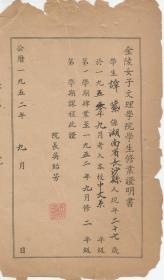 金陵女子文理學院學生修業證明書
學生譚紫係湖南省長沙縣人現年二十七歲
於一九五零年九月考入本校中文系 年級
第一學期肄業至一九五二年九月修 二 年級
第 學期課程此證
院長吳貽芳
公曆一九五二年 九月 日